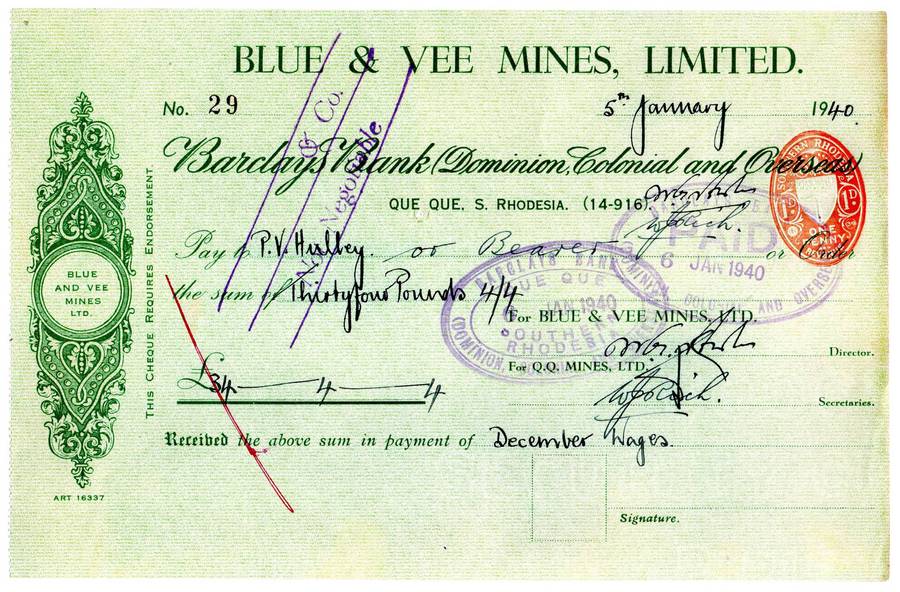 BLUE & VEE MINES, LIMITED.
No. 29
5th January 1940.
& Co.
Not Negotiable
Barclays Bank (Dominion, Colonial and Overseas)
QUE QUE, S. RHODESIA. (14-916)
SOUTHERN RHODESIA
1D 1D
ONE PENNY
Pay to P.V. Hulley. or Bearer or Order
PAID
6 JAN 1940
COLONIAL AND OVERSEAS
the sum of Thirtyfour Pounds 4/4
BARCLAYS BANK
QUE QUE
JAN 1940
SOUTHERN
RHODESIA
(DOMINION,
For BLUE & VEE MINES, LTD.
Director.
For Q.Q. MINES, LTD.
£34 — 4 — 4
Secretaries.
Received the above sum in payment of December Wages.
Signature.
THIS CHEQUE REQUIRES ENDORSEMENT
BLUE
AND VEE
MINES
LTD.
ART 16337